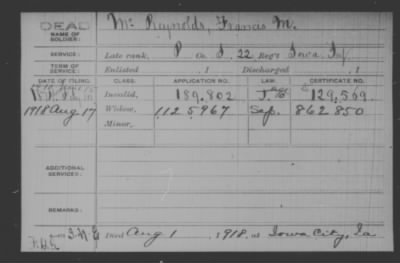 DEAD
NAME OF SOLDIER: Mc Reynolds, Francis M.
SERVICE: Late rank, P Co. I, 22 Reg't Iowa Inf
TERM OF SERVICE: Enlisted , 1 Discharged , 1
DATE OF FILING. CLASS. APPLICATION NO. LAW. CERTIFICATE NO.
Invalid, 189,802 129,569
1918 Aug 17 Widow, 1125967 Sep. 862850
Minor,
ADDITIONAL SERVICES:
REMARKS:
Died Aug 1 , 1918, at Iowa City, Ia